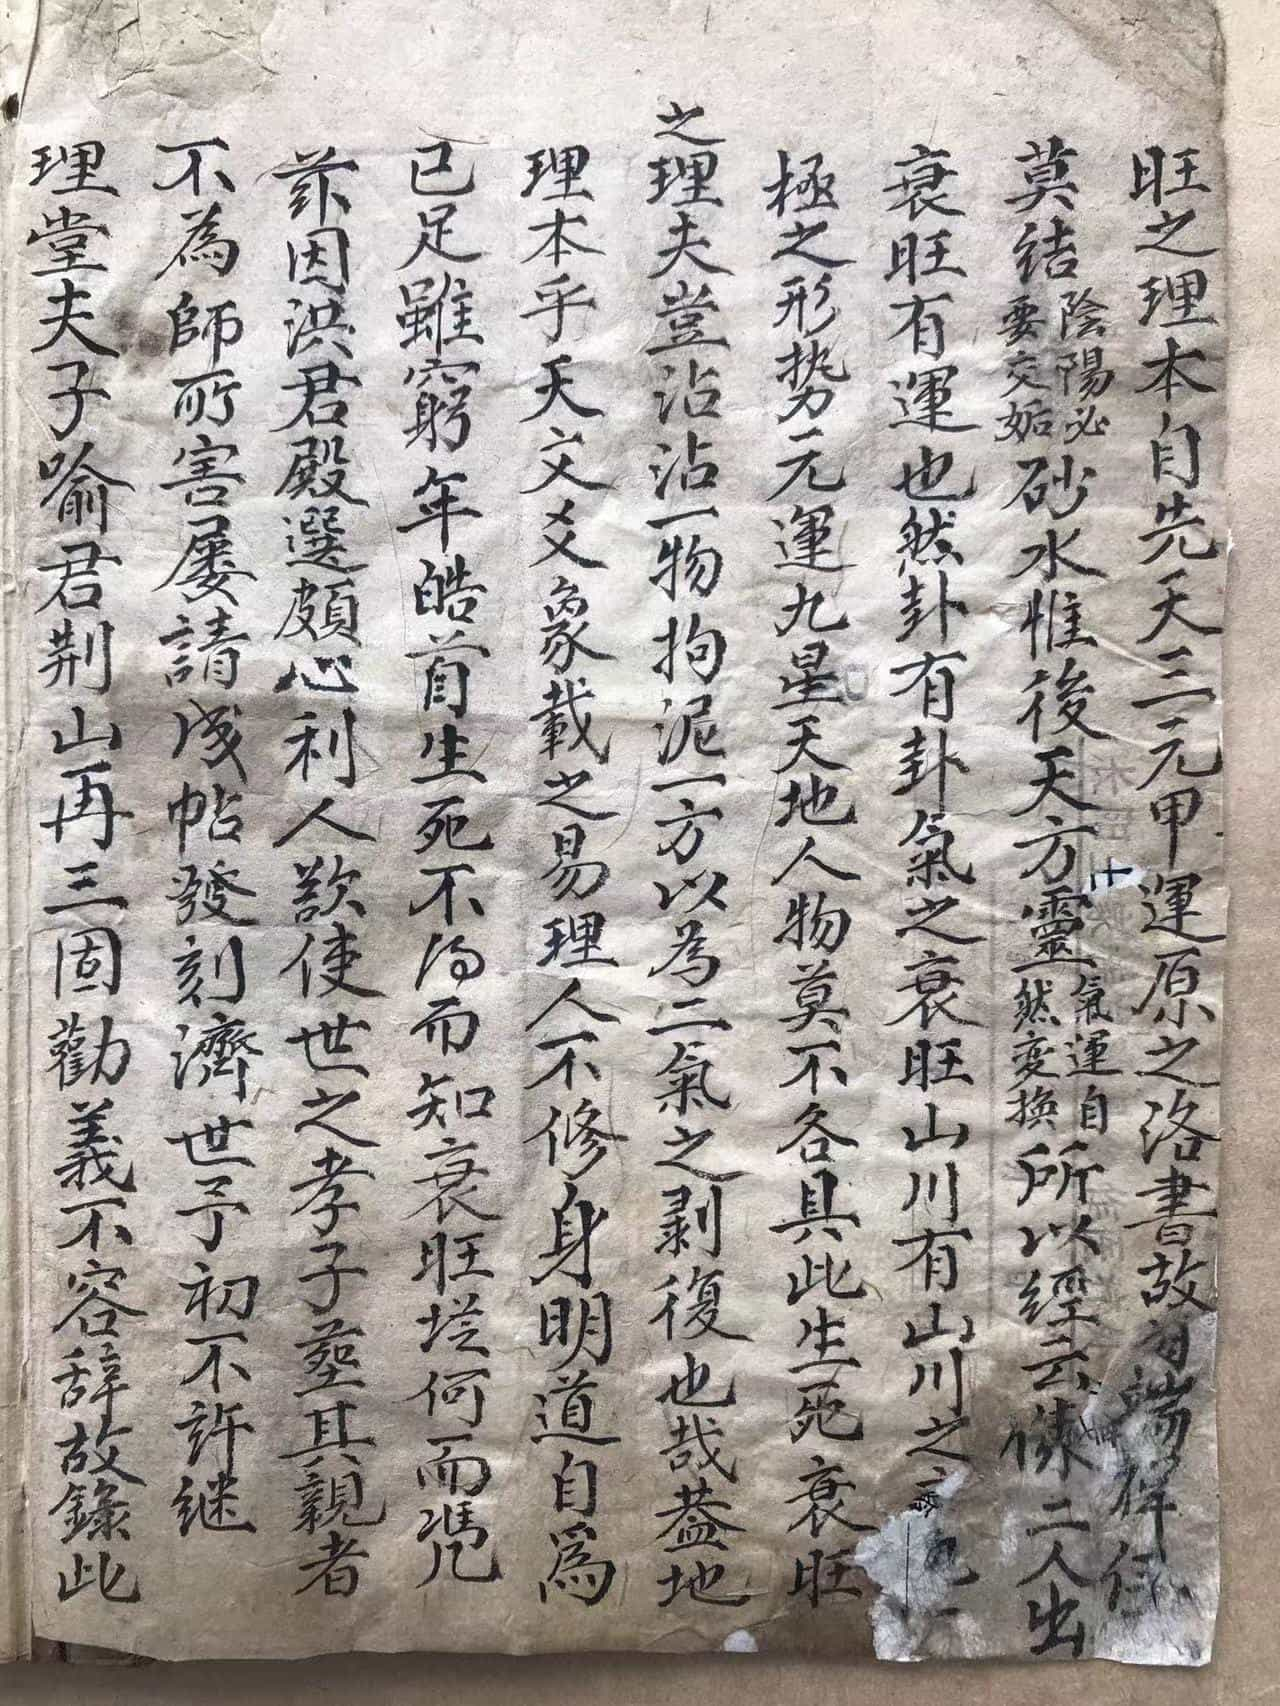 旺之理本自先天三元甲運原之洛書故
莫結陰陽必要交姤砂水惟後天方靈氣運自然变換所以經云 二人出
衰旺有運也然卦有卦氣之衰旺山川有山川之
極之形势元運九星天地人物莫不各具此生死衰旺
之理夫豈沾沾一物拘泥一方以為二氣之剥復也哉蓋地
理本乎天文爻象載之易理人不修身明道自為
已足雖窮年皓首生死不得而知衰旺從何而馮凡
茲因洪君殿選頗心利人欲使世之孝子塟其親者
不為師所害屢請成帖發刻濟世予初不許继
理堂夫子喻君荆山再三固勸義不容辞故錄此